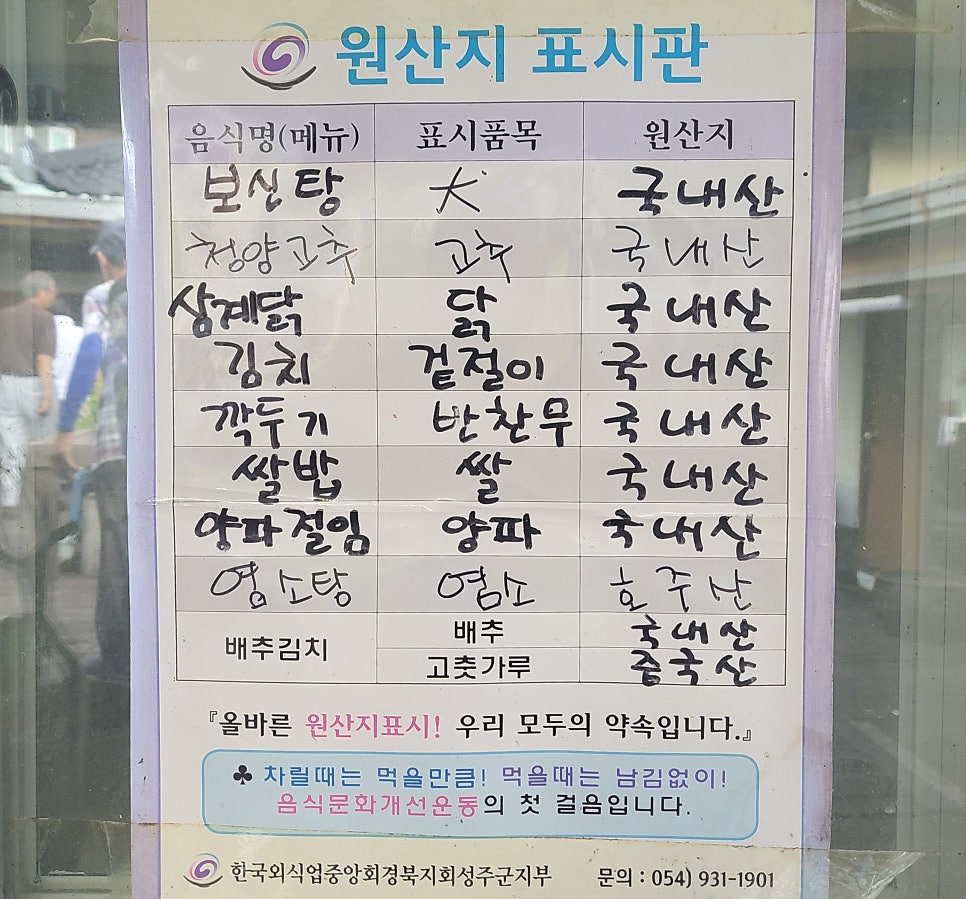 원산지 표시판
음식명(메뉴) 표시품목 원산지
보신탕 犬 국내산
청양고추 고추 국내산
삼계닭 닭 국내산
김치 겉절이 국내산
깍두기 반찬무 국내산
쌀밥 쌀 국내산
양파절임 양파 국내산
염소탕 염소 호주산
배추김치 배추 국내산
고춧가루 중국산
『올바른 원산지표시! 우리 모두의 약속입니다.』
♣ 차릴때는 먹을만큼! 먹을때는 남김없이!
음식문화개선운동의 첫 걸음입니다.
한국외식업중앙회경북지회성주군지부 문의 : 054) 931-1901